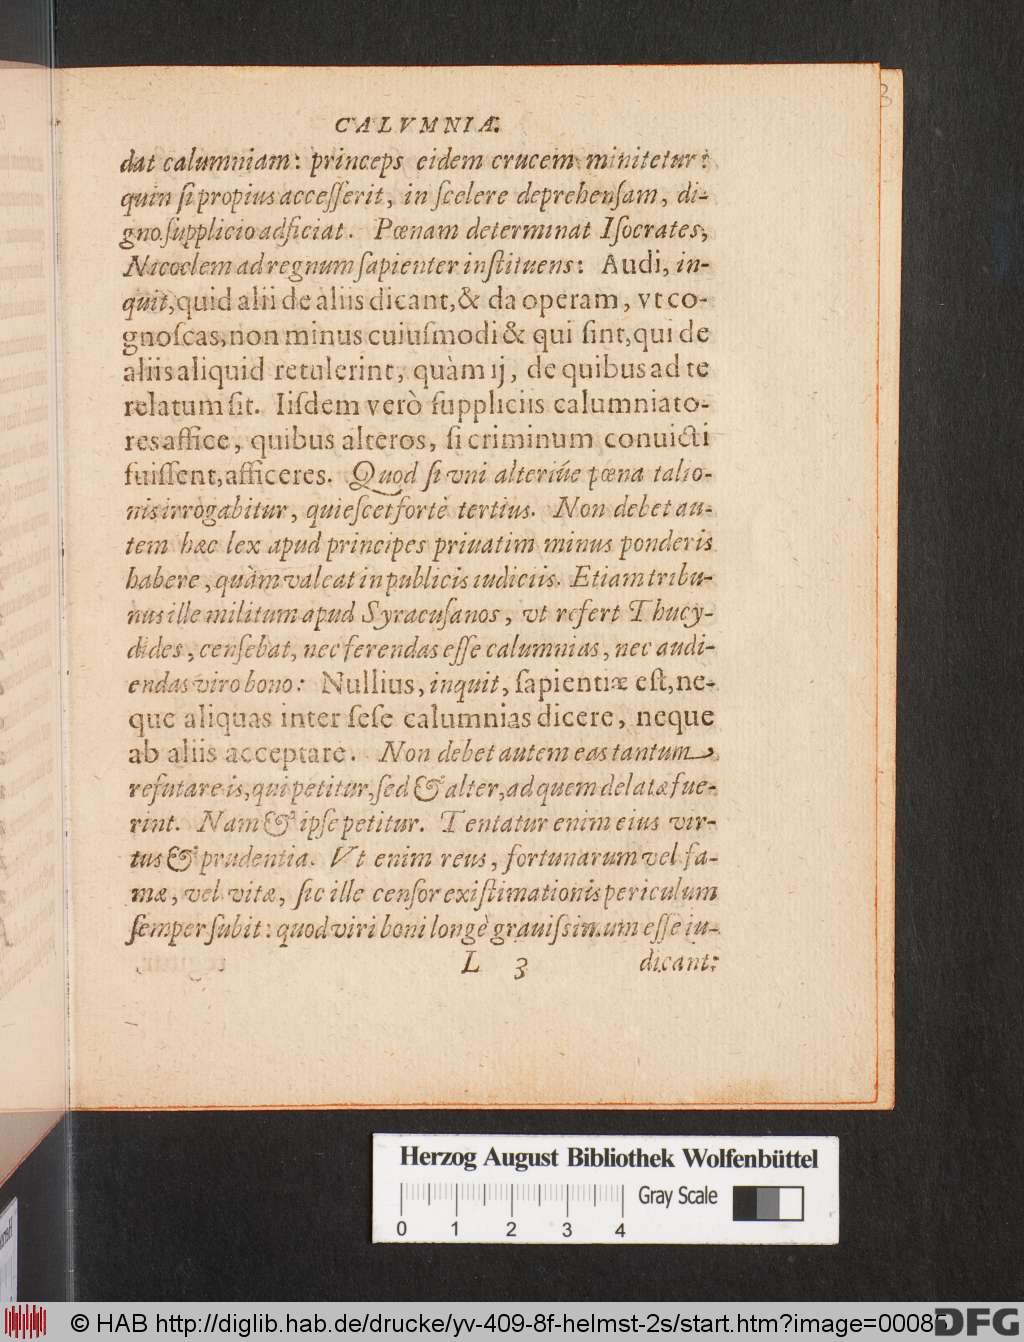 CALVMNIÆ.
dat calumniam: princeps eidem crucem minitetur:
quin ſi propius acceſſèrit, in ſcelere deprehenſam, di-
gno ſupplicio adficiat. Pœnam determinat Iſocrates,
Nicoclem ad regnum ſapienter inſtituens: Audi, in-
quit, quid alii de aliis dicant, & da operam, vt co-
gnoſcas, non minus cuiuſmodi & qui ſint, qui de
aliis aliquid retulerint, quàm ij, de quibus ad te
relatum ſit. Iiſdem verò ſuppliciis calumniato-
res affice, quibus alteros, ſi criminum conuicti
fuiſſent, afficeres. Quod ſi vni alteriúe pœna talio-
nis irrogabitur, quieſcet fortè tertius. Non debet au-
tem hæc lex apud principes priuatim minus ponderis
habere, quàm valeat in publicis iudiciis. Etiam tribu-
nus ille militum apud Syracuſanos, vt refert Thucy-
dides, cenſebat, nec ferendas eſſe calumnias, nec audi-
endas viro bono: Nullius, inquit, ſapientiæ eſt, ne-
que aliquas inter ſeſe calumnias dicere, neque
ab aliis acceptare. Non debet autem eas tantum
refutare is, qui petitur, ſed & alter, ad quem delatæ fue-
rint. Nam & ipſe petitur. Tentatur enim eius vir-
tus & prudentia. Vt enim reus, fortunarum vel fa-
mæ, vel vitæ, ſic ille cenſor exiſtimationis periculum
ſemper ſubit: quod viri boni longè grauiſsimum eſſe iu-
L 3 dicant:
Herzog August Bibliothek Wolfenbüttel
Gray Scale
0 1 2 3 4
© HAB http://diglib.hab.de/drucke/yv-409-8f-helmst-2s/start.htm?image=00085
DFG